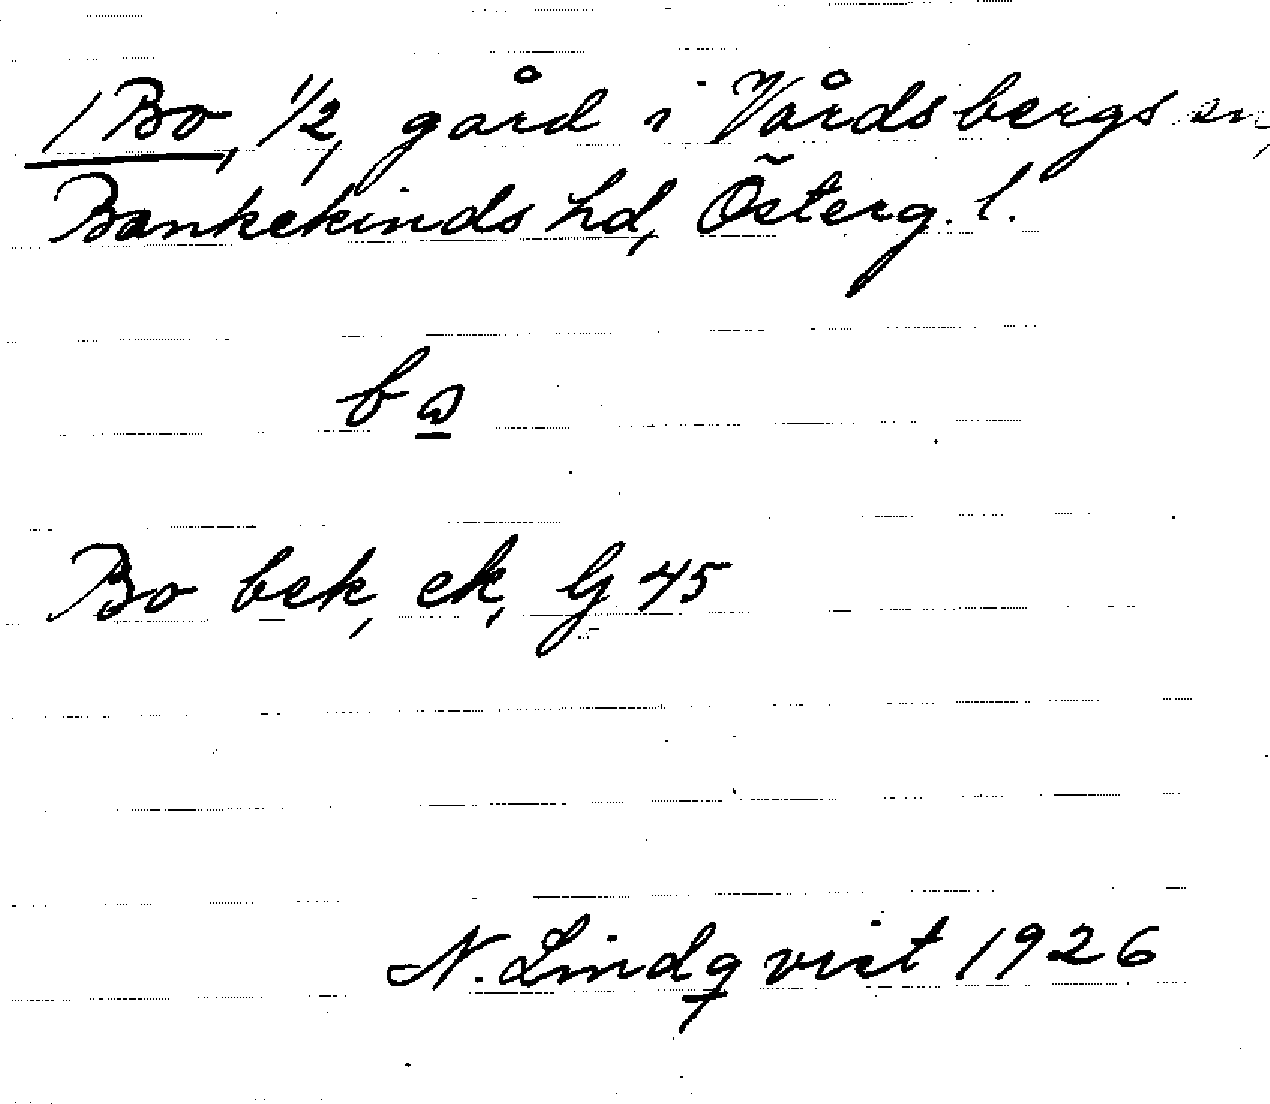 1 Bo, 1/2, gård i Vårdsbergs sn,
Bankekinds hd, Österg. l.
bω
Bo bek, ek, G 45
N. Lindqvist 1926